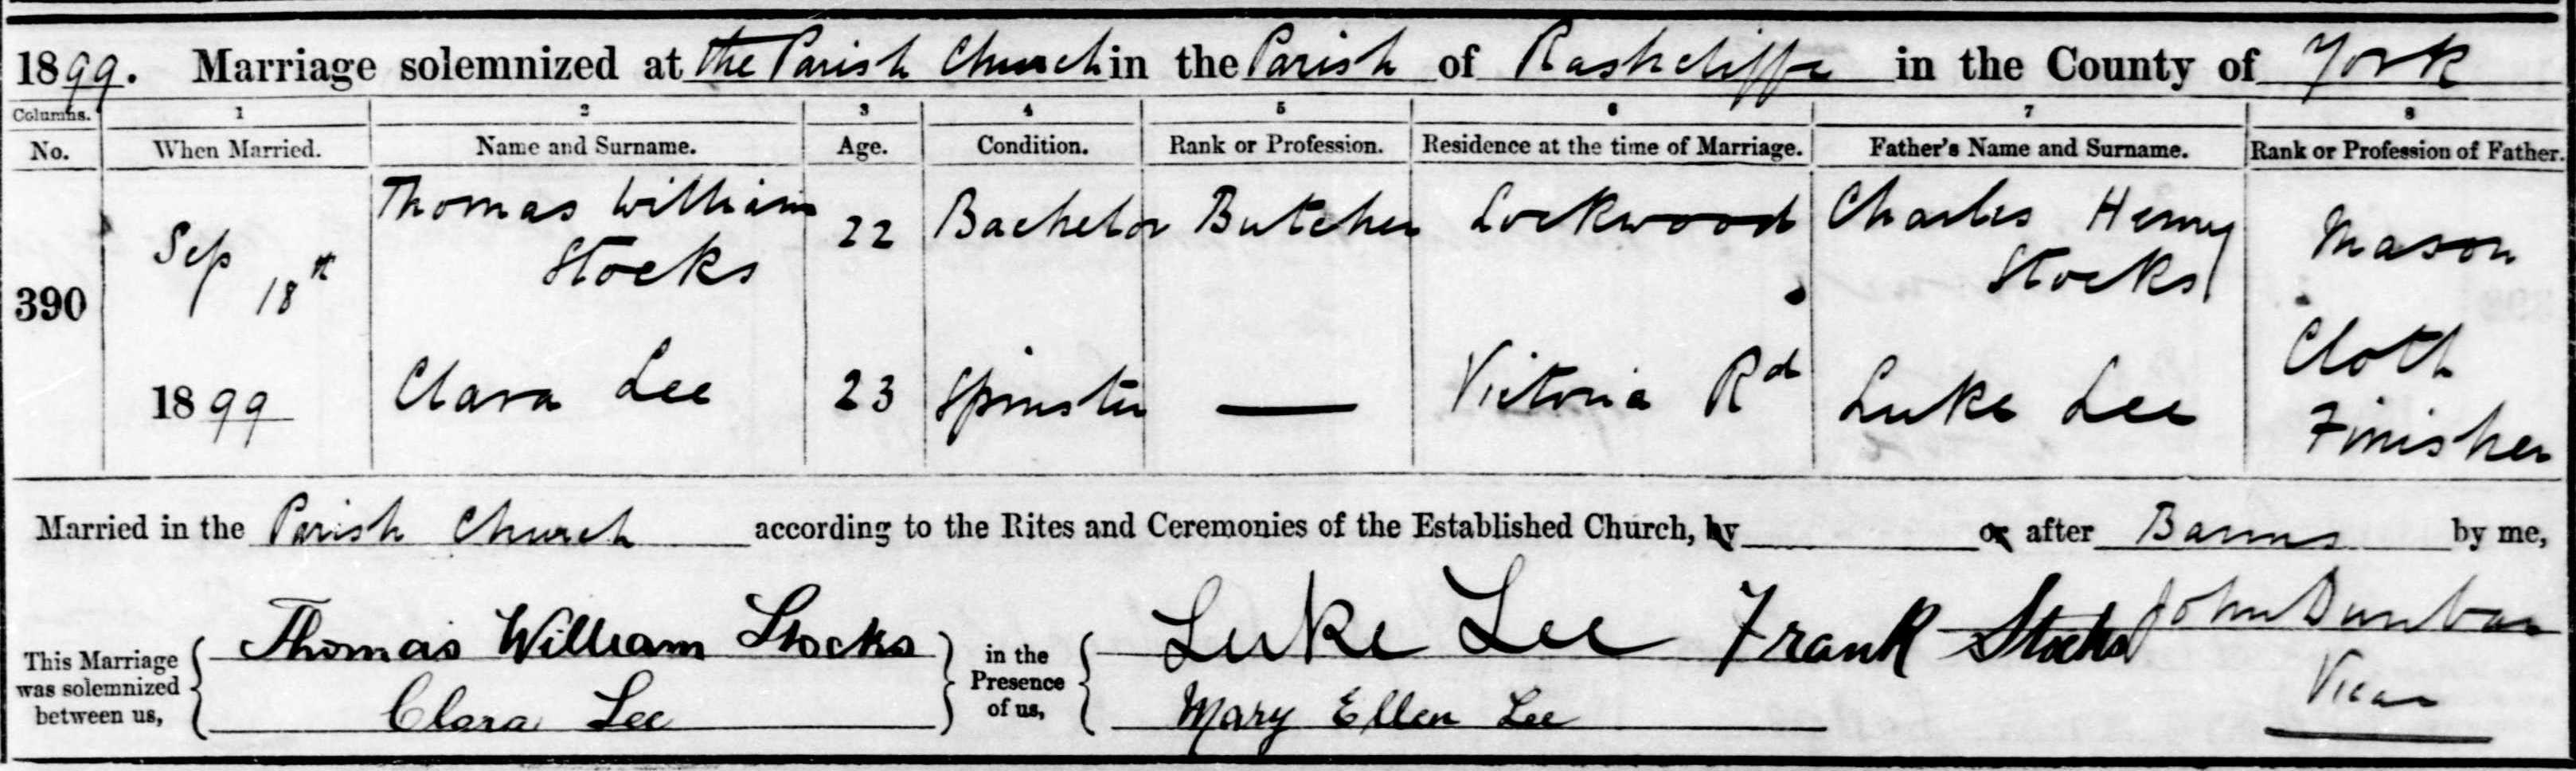 1899. Marriage solemnized at the Parish Church in the Parish of Rashcliffe in the County of York
Columns. 1 2 3 4 5 6 7 8
No. When Married. Name and Surname. Age. Condition. Rank or Profession. Residence at the time of Marriage. Father's Name and Surname. Rank or Profession of Father.
390 Sep 18th 1899
Thomas William Stocks 22 Bachelor Butcher Lockwood Charles Henry Stocks Mason
Clara Lee 23 Spinster — Victoria Rd Luke Lee Cloth Finisher
Married in the Parish Church according to the Rites and Ceremonies of the Established Church, by or after Banns by me,
This Marriage was solemnized between us, { Thomas William Stocks } in the Presence of us, { Luke Lee Frank Stocks John Dunbar
Clara Lee Mary Ellen Lee Vicar